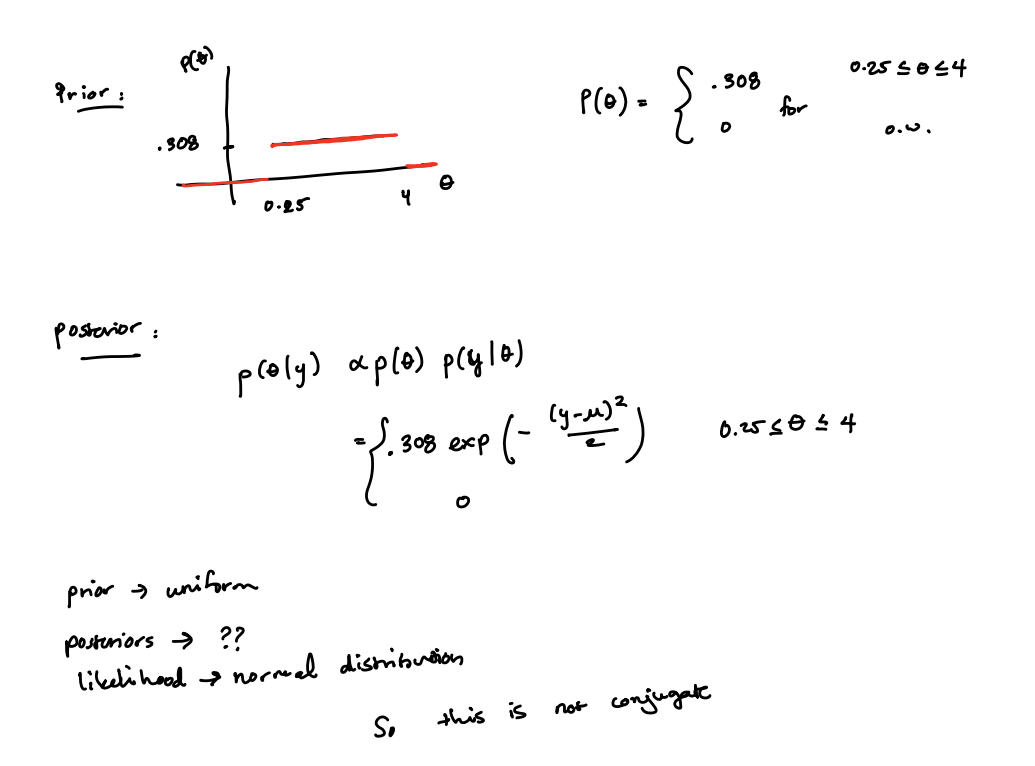 Prior :
p(θ)
.308
0.25
4
θ
P(θ) = { .308 for 0.25 ≤ θ ≤ 4
0 o.w.
posterior :
p(θ|y) ∝ p(θ) p(y|θ)
= { .308 exp (- (y-μ)² / 2) 0.25 ≤ θ ≤ 4
0
prior → uniform
posteriors → ??
likelihood → normal distribution
So this is not conjugate